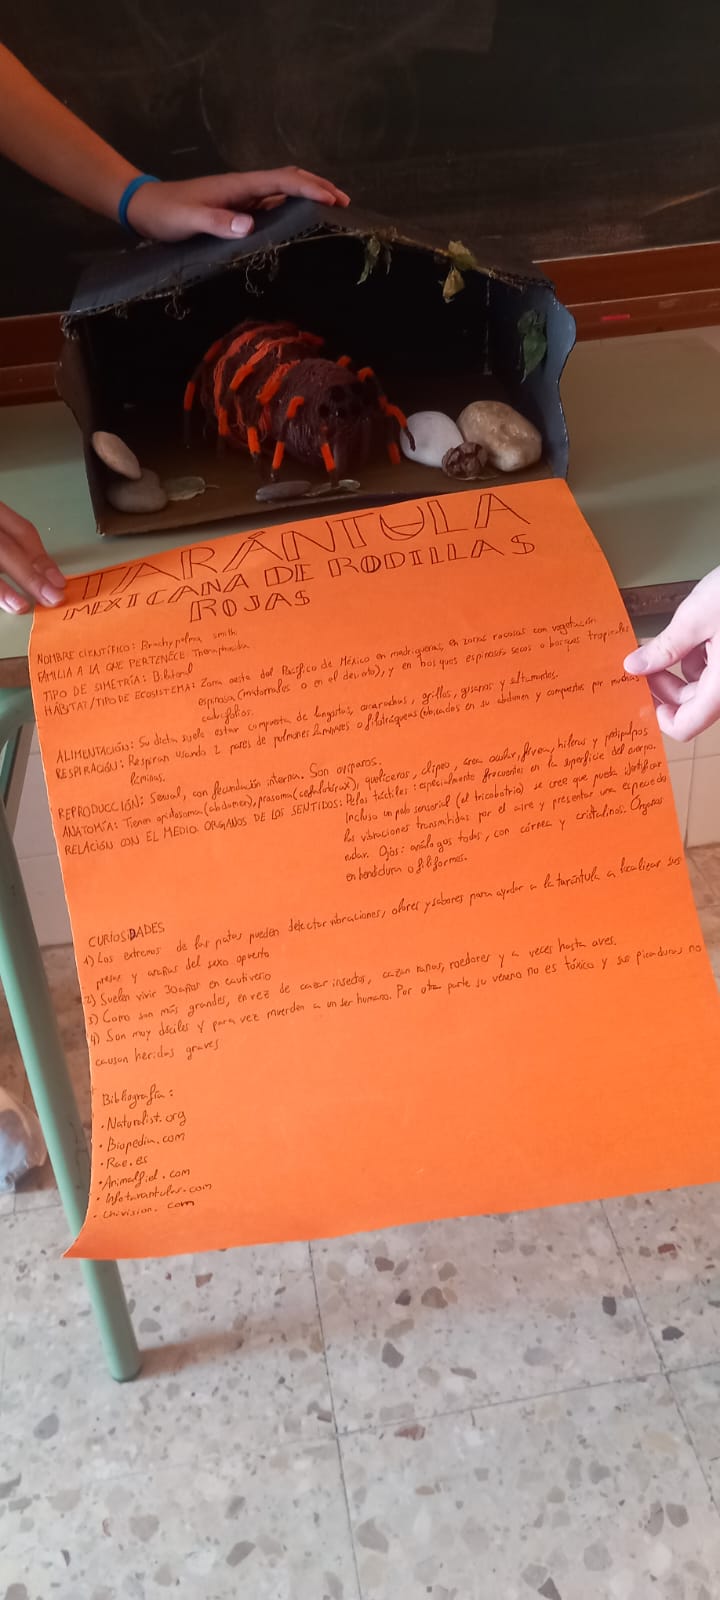 TARÁNTULA
MEXICANA DE RODILLAS
ROJAS
NOMBRE CIENTÍFICO: Brachypelma smith
FAMILIA A LA QUE PERTENECE: Theraphosidae
TIPO DE SIMETRÍA: Bilateral
HÁBITAT/TIPO DE ECOSISTEMA: Zona oeste del Pacífico de México en madrigueras, en zonas rocosas con vegetación
espinosa (matorrales o en el desierto), y en bosques espinosos secos o bosques tropicales
caducifolios.
ALIMENTACIÓN: Su dieta suele estar compuesta de langostas, cucarachas, grillos, gusanos y saltamontes.
RESPIRACIÓN: Respiran usando 2 pares de pulmones laminares o filotráqueas (ubicados en su abdomen y compuestos por muchas
láminas.
REPRODUCCIÓN: Sexual, con fecundación interna. Son ovíparos.
ANATOMÍA: Tienen opistosoma (abdomen), prosoma (cefalotórax), quelíceros, clípeo, área ocular, fóvea, hileras y pedipalpos
RELACIÓN CON EL MEDIO ORGANOS DE LOS SENTIDOS: Pelos táctiles: especialmente frecuentes en la superficie del cuerpo.
Incluso un pelo sensorial (el tricobotrio) se cree que pueda identificar
las vibraciones transmitidas por el aire y presentar una especie de
radar. Ojos: análogos todos, con córnea y cristalinos. Órganos
en hendidura o filiformes.
CURIOSIDADES
1) Los extremos de las patas pueden detectar vibraciones, olores y sabores para ayudar a la tarántula a localizar sus
presas y arañas del sexo opuesto
2) Suelen vivir 30 años en cautiverio
3) Como son más grandes, en vez de cazar insectos, cazan ranas, roedores y a veces hasta aves.
4) Son muy dóciles y para vez muerden a un ser humano. Por otra parte su veneno no es tóxico y sus picaduras no
causan heridas graves
Bibliografía:
• Naturalist.org
• Biopedia.com
• Rae.es
• Animalfiel.com
• Infotarantulas.com
• Univision.com